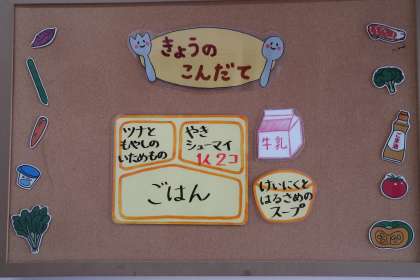 きょうの
こんだて
ツナと
もやしの
いためもの
やき
シューマイ
1人2コ
牛乳
ごはん
けいにくと
はるさめの
スープ
ごま油